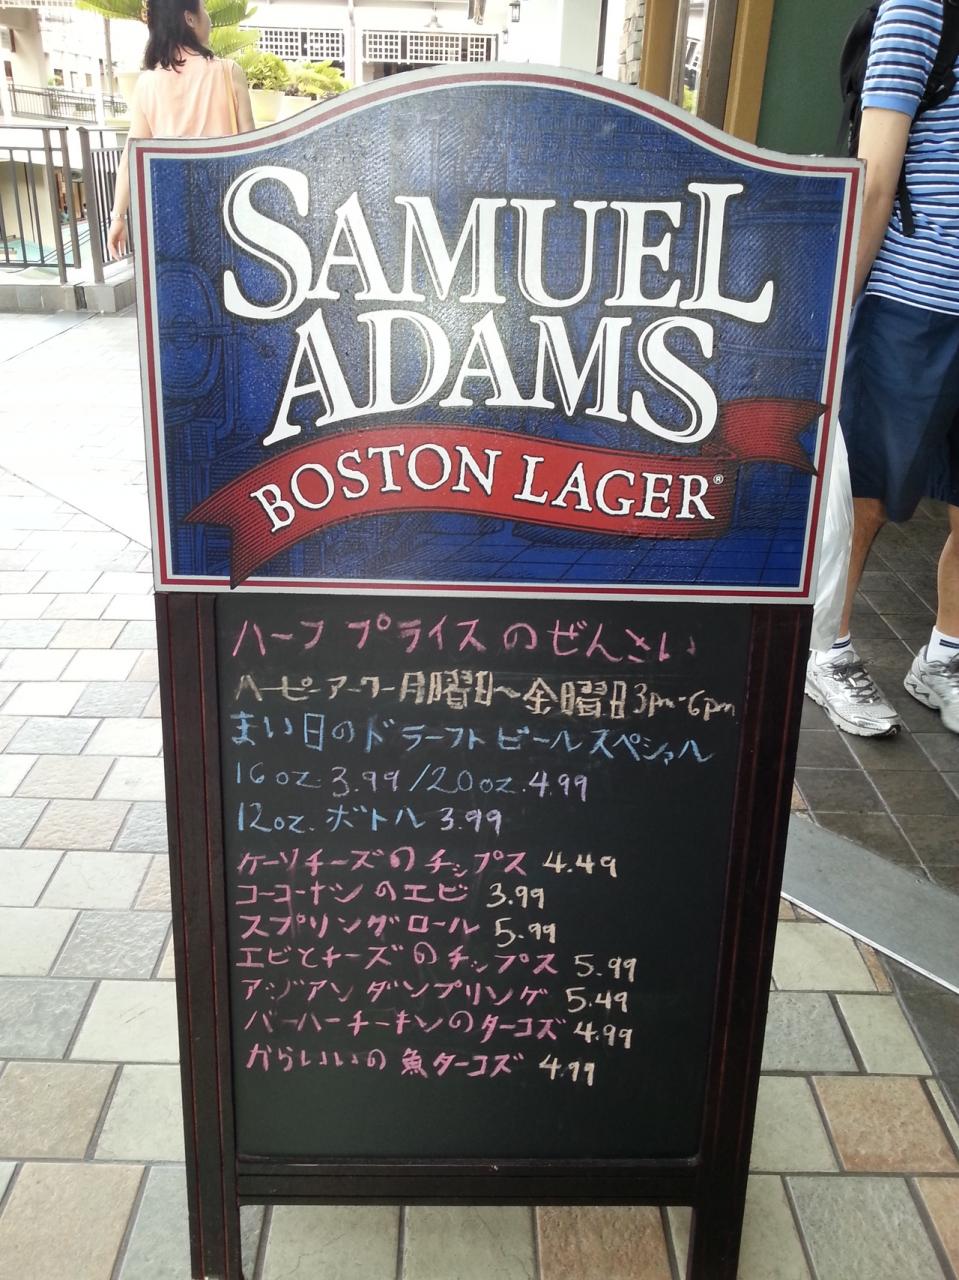 SAMUEL
ADAMS
BOSTON LAGER®
ハーフ プライスのぜんさい
ハーピーアークー月曜日〜金曜日3pm-6pm
まい日のドラーフトビールスペシャル
16oz.3.99/20oz.4.99
12oz.ボトル3.99
ケーソチーズのチップス 4.49
コーコーナツのエビ 3.99
スプリングロール 5.99
エビとチーズのチップス 5.99
アジアンダンプリング 5.49
バーハーチーキンのターコズ 4.99
からいいの魚ターコズ 4.99